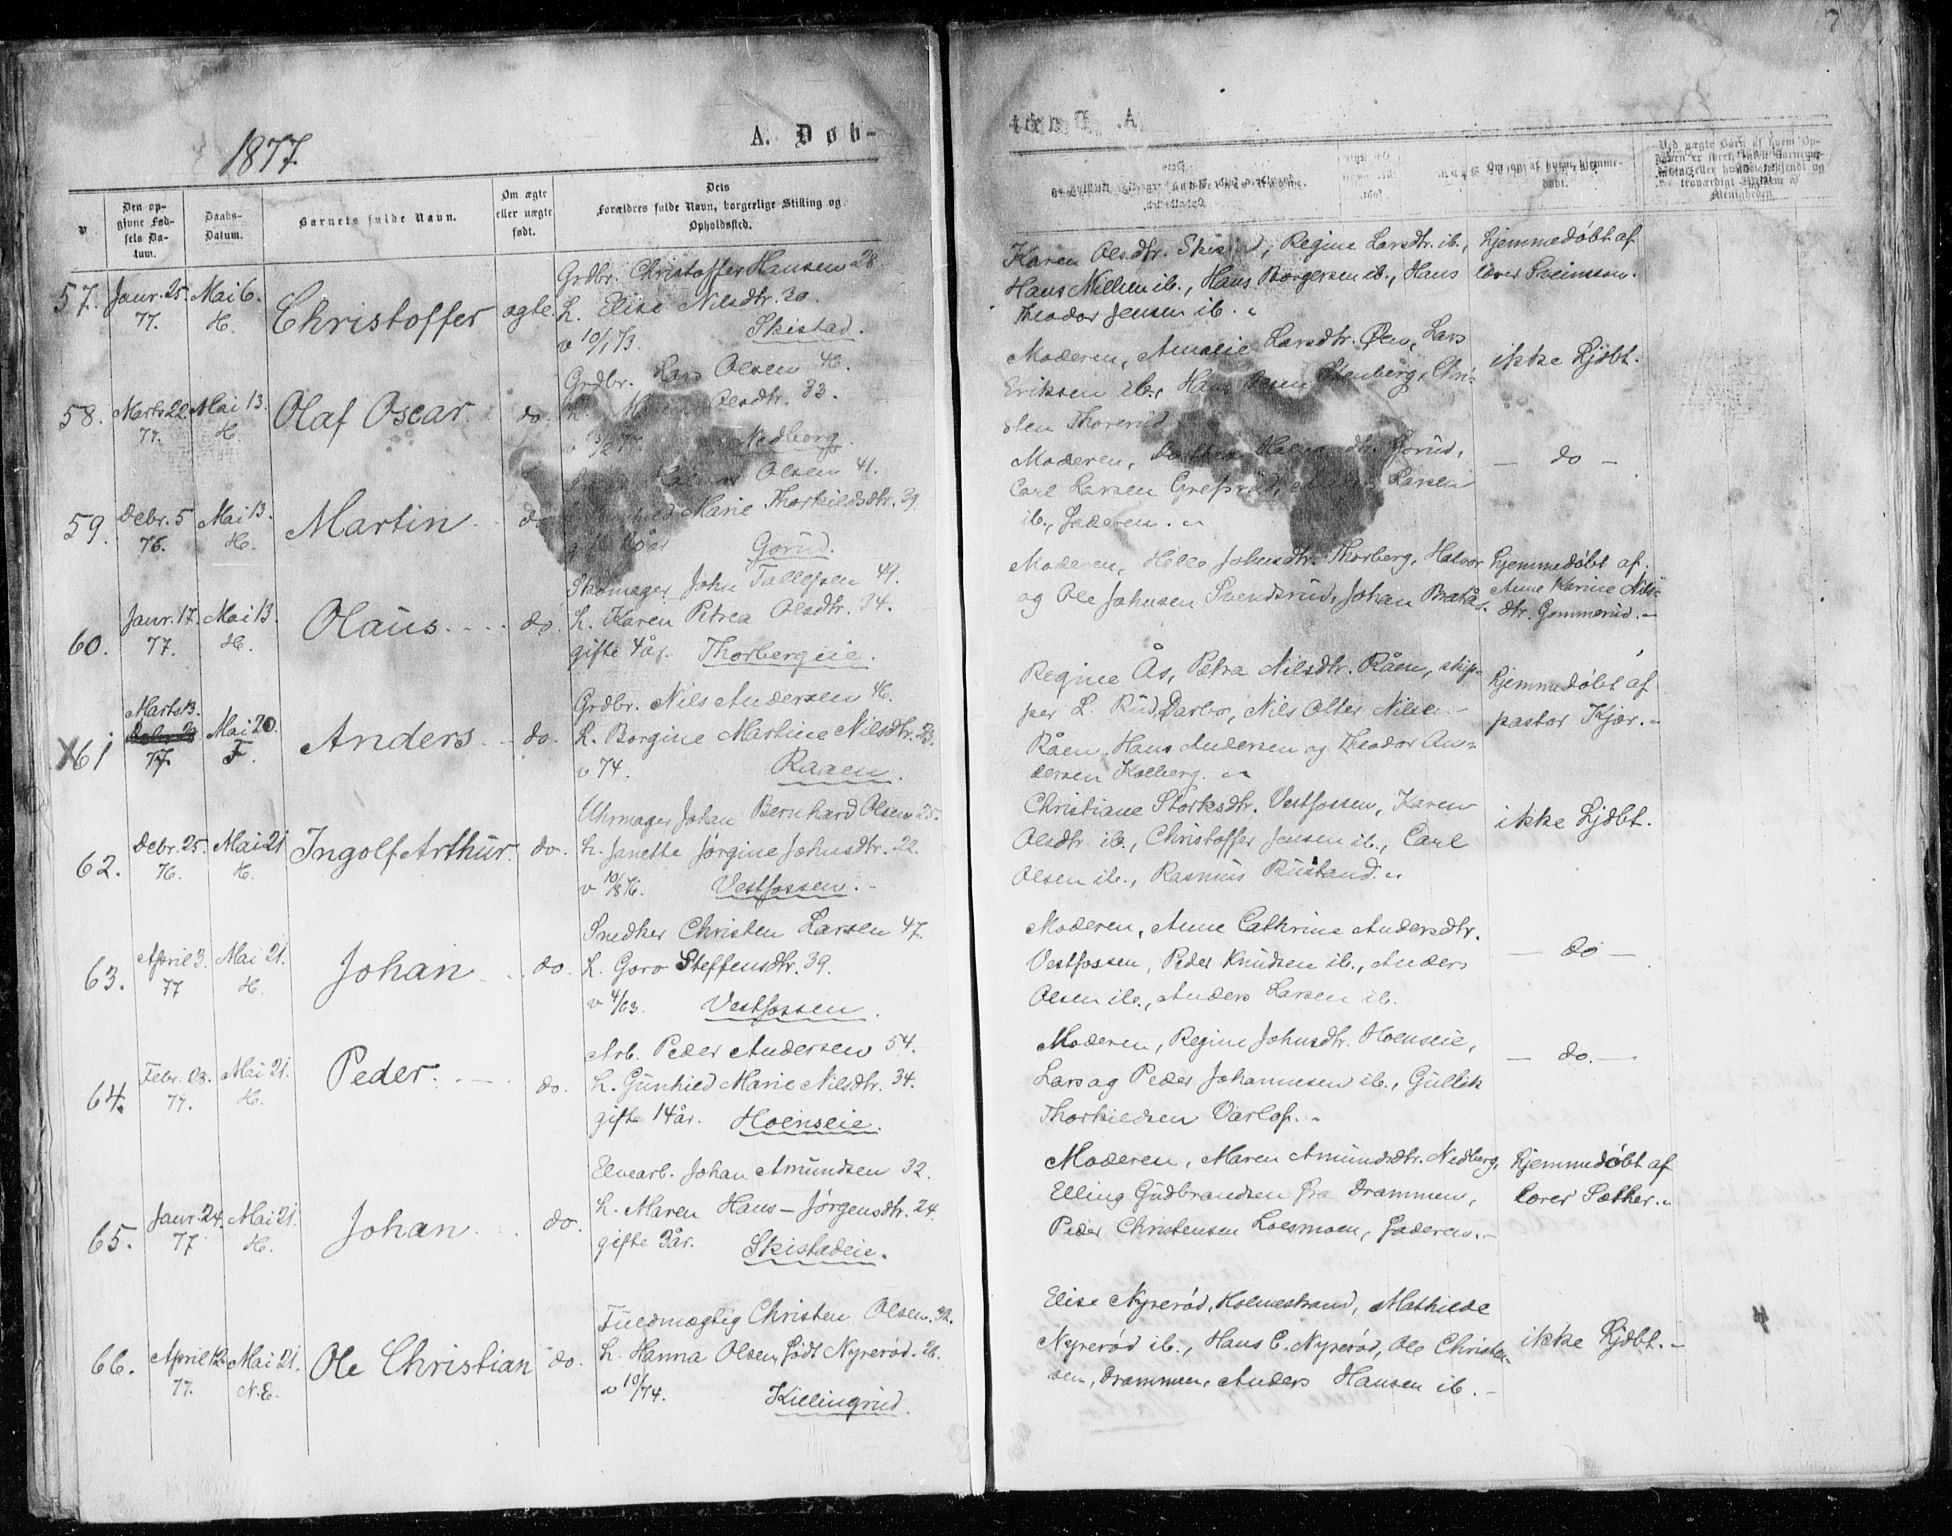 7
1877.
A. Døb-
n
Den op-
givne Fød-
sels Da-
tum.
Daabs-
Datum.
Barnets fulde Navn.
Om ægte
eller uægte
født.
Dets
Forældres fulde Navn, borgerlige Stilling og
Opholdssted.
Om og af hvem hjemme-
døbt.
57.
Janr. 25.
77.
Mai 6.
H.
Christoffer
ægte.
Grdbr. Christoffer Hansen 28.
h. Elise Nilsdtr. 30.
v 10/1 73.
Skistad.
Karen Olsdtr. Skistad, Regine Larsdtr. ib.,
Hans Nilsen ib., Hans Borgersen ib., Hans
Theodor Jensen ib.
hjemmedøbt af
lærer Sveinsson.
58.
Marts 22
77.
Mai 13.
H.
Olaf Oscar
do.
Grdbr. Lars Olsen 46.
h. Olsdtr. 33.
Nedberg.
Moderen, Amalie Larsdtr. Øen, Lars
Eriksen ib., Hans Stenberg, Chri-
sten Thorerud
ikke hjdbt.
59.
Debr. 5
76.
Mai 13.
H.
Martin
do
Olsen 41.
Marie Thorkildsdtr. 39
Gorud.
Moderen, Gorud,
Carl Larsen Larsen
ib., Faderen.
- do -
60.
Janr. 17.
77.
Mai 13.
H.
Olaus
do.
Skomager John Tollefsen 49.
h. Karen Petrea Olsdtr. 34.
gifte 4 år. Thorbergeie.
Moderen, Helle Johnsdtr. Thorberg, Halvor
og Ole Johnsen Svendsrud, Johan Bratås.
hjemmedøbt af
Anne Karine Nils-
dtr. Gommerud.
X 61
Marts 13.
77.
Mai 20.
F.
Anders
do.
Grdbr. Nils Andersen 46.
h. Borgine Martine Nilsdtr. 23.
v 74.
Raaen.
Regine Ås, Petra Nilsdtr. Råen, skip-
per L. Rud, Darbo, Nils Otter Nilsen
Råen, Hans Andersen og Theodor An-
dersen Kolberg.
hjemmedøbt af
pastor Kjær.
62.
Debr. 25.
76.
Mai 21
H.
Ingolf Arthur.
do.
Uhrmager Johan Bernhard Olsen 25.
h. Janette Jørgine Johnsdtr. 22.
Vestfossen.
Christiane Størksdtr. Vestfossen, Karen
Olsdtr. ib., Christoffer Jensen ib., Carl
Olsen ib., Rasmus Rustand.
ikke hjdbt.
63.
April 3.
77
Mai 21.
H.
Johan
do.
Snedker Christen Larsen 47.
h. Goro Steffensdtr. 39.
v 4/63.
Vestfossen.
Moderen, Anne Cathrine Andersdtr.
Vestfossen, Peder Knudsen ib., Anders
Olsen ib., Anders Larsen ib.
- do -
64.
Febr. 23.
77.
Mai 21.
H.
Peder.
do.
Arb. Peder Andersen 54.
h. Gunhild Marie Nilsdtr. 34.
gifte 14 år. Hoenseie.
Moderen, Regine Johnsdtr. Hoenseie,
Lars og Peder Johannesen ib., Gullik
Thorkildsen Varlo.
- do. -
65.
Janr. 24.
77
Mai 21.
H.
Johan
do.
Elvearb. Johan Amundsen 32.
h. Maren Hans-Jørgensdtr. 24.
gifte 3 år. Skistadeie.
Moderen, Maren Amundsdtr. Nedberg,
Elling Gudbrandsen fra Drammen,
Peder Christensen Loesmoen, Faderen.
hjemmedøbt af
lærer Sæther.
66.
April 12
77.
Mai 21.
N.E.
Ole Christian
do.
Fuldmægtig Christen Olsen. 32.
h. Hanna Olsen, født Nyrerød. 26.
v 10/74.
Killingrud.
Elise Nyrerød, Holmestrand, Mathilde
Nyrerød ib., Hans C. Nyrerød, Ole Christen-
sen, Drammen, Anders Hansen ib.
ikke hjdbt.